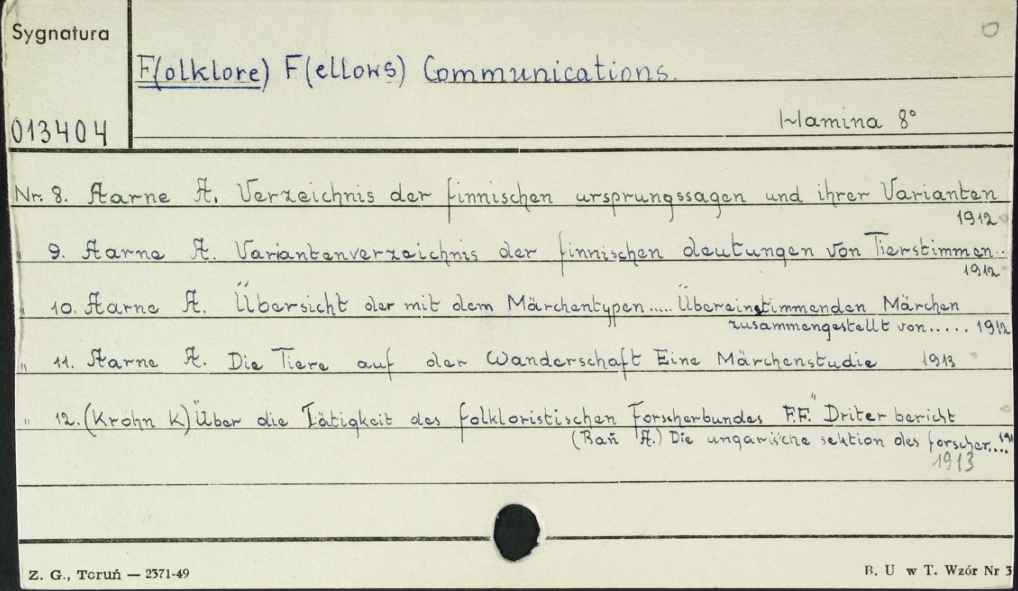 Sygnatura
F(olklore) F(ellows) Communications.
Hamina 8°
013404
Nr. 8. Aarne A. Verzeichnis der finnischen ursprungssagen und ihrer Varianten
1912
9. Aarne A. Variantenverzeichnis der finnischen deutungen von Tierstimmen..
1912
10. Aarne A. Übersicht der mit dem Märchentypen ..... Übereinstimmenden Märchen
zusammengestellt von..... 1912
" 11. Aarne A. Die Tiere auf der Wanderschaft Eine Märchenstudie 1913
" 12. (Krohn K) Über die Tätigkeit des folkloristischen Forscherbundes "F.F." Driter bericht
(Bań A.) Die ungarische sektion des forscher....
1913
Z. G., Toruń — 2371-49
B. U w T. Wzór Nr 3